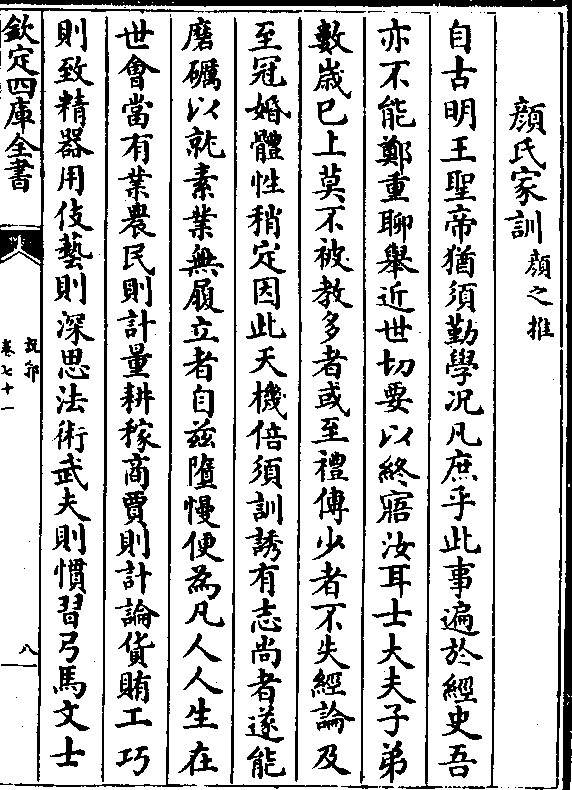 顔氏家訓顔之推
自古明王聖帝猶須勤學况凡庶乎此事遍於經史吾
亦不能鄭重聊舉近世切要以終寤汝耳士大夫子弟
數歳已上莫不被教多者或至禮傳少者不失經論及
至冠婚體性稍定因此天機倍須訓誘有志尚者遂能
磨礪以就素業無履立者自兹墮慢便為凡人人生在
世會當有業農民則計量耕稼商賈則計論貨賄工巧
則致精器用伎藝則深思法術武夫則慣習弓馬文士
欽定四庫全書
說郛
卷七十一
八